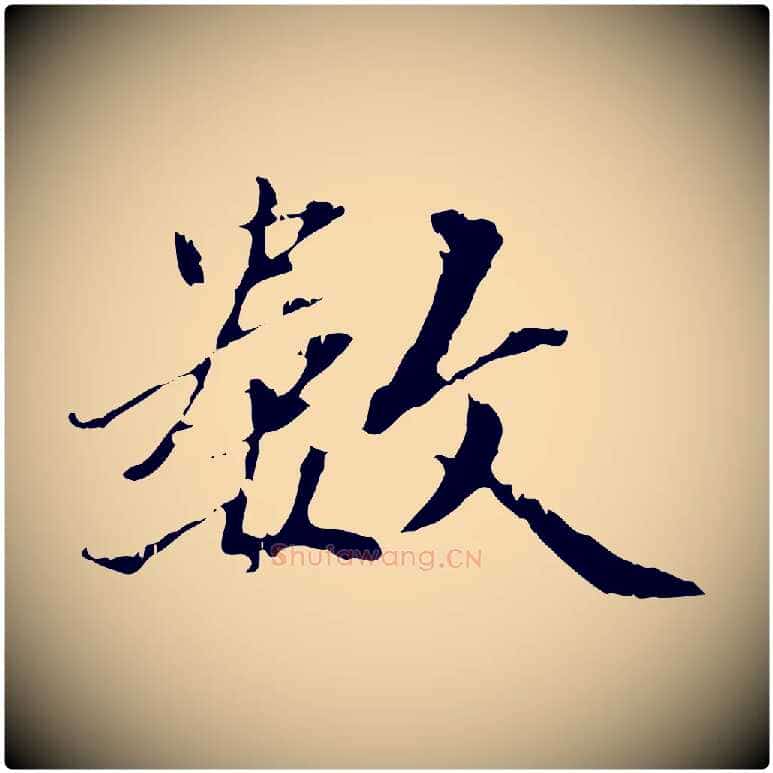 数
Shufawang.CN